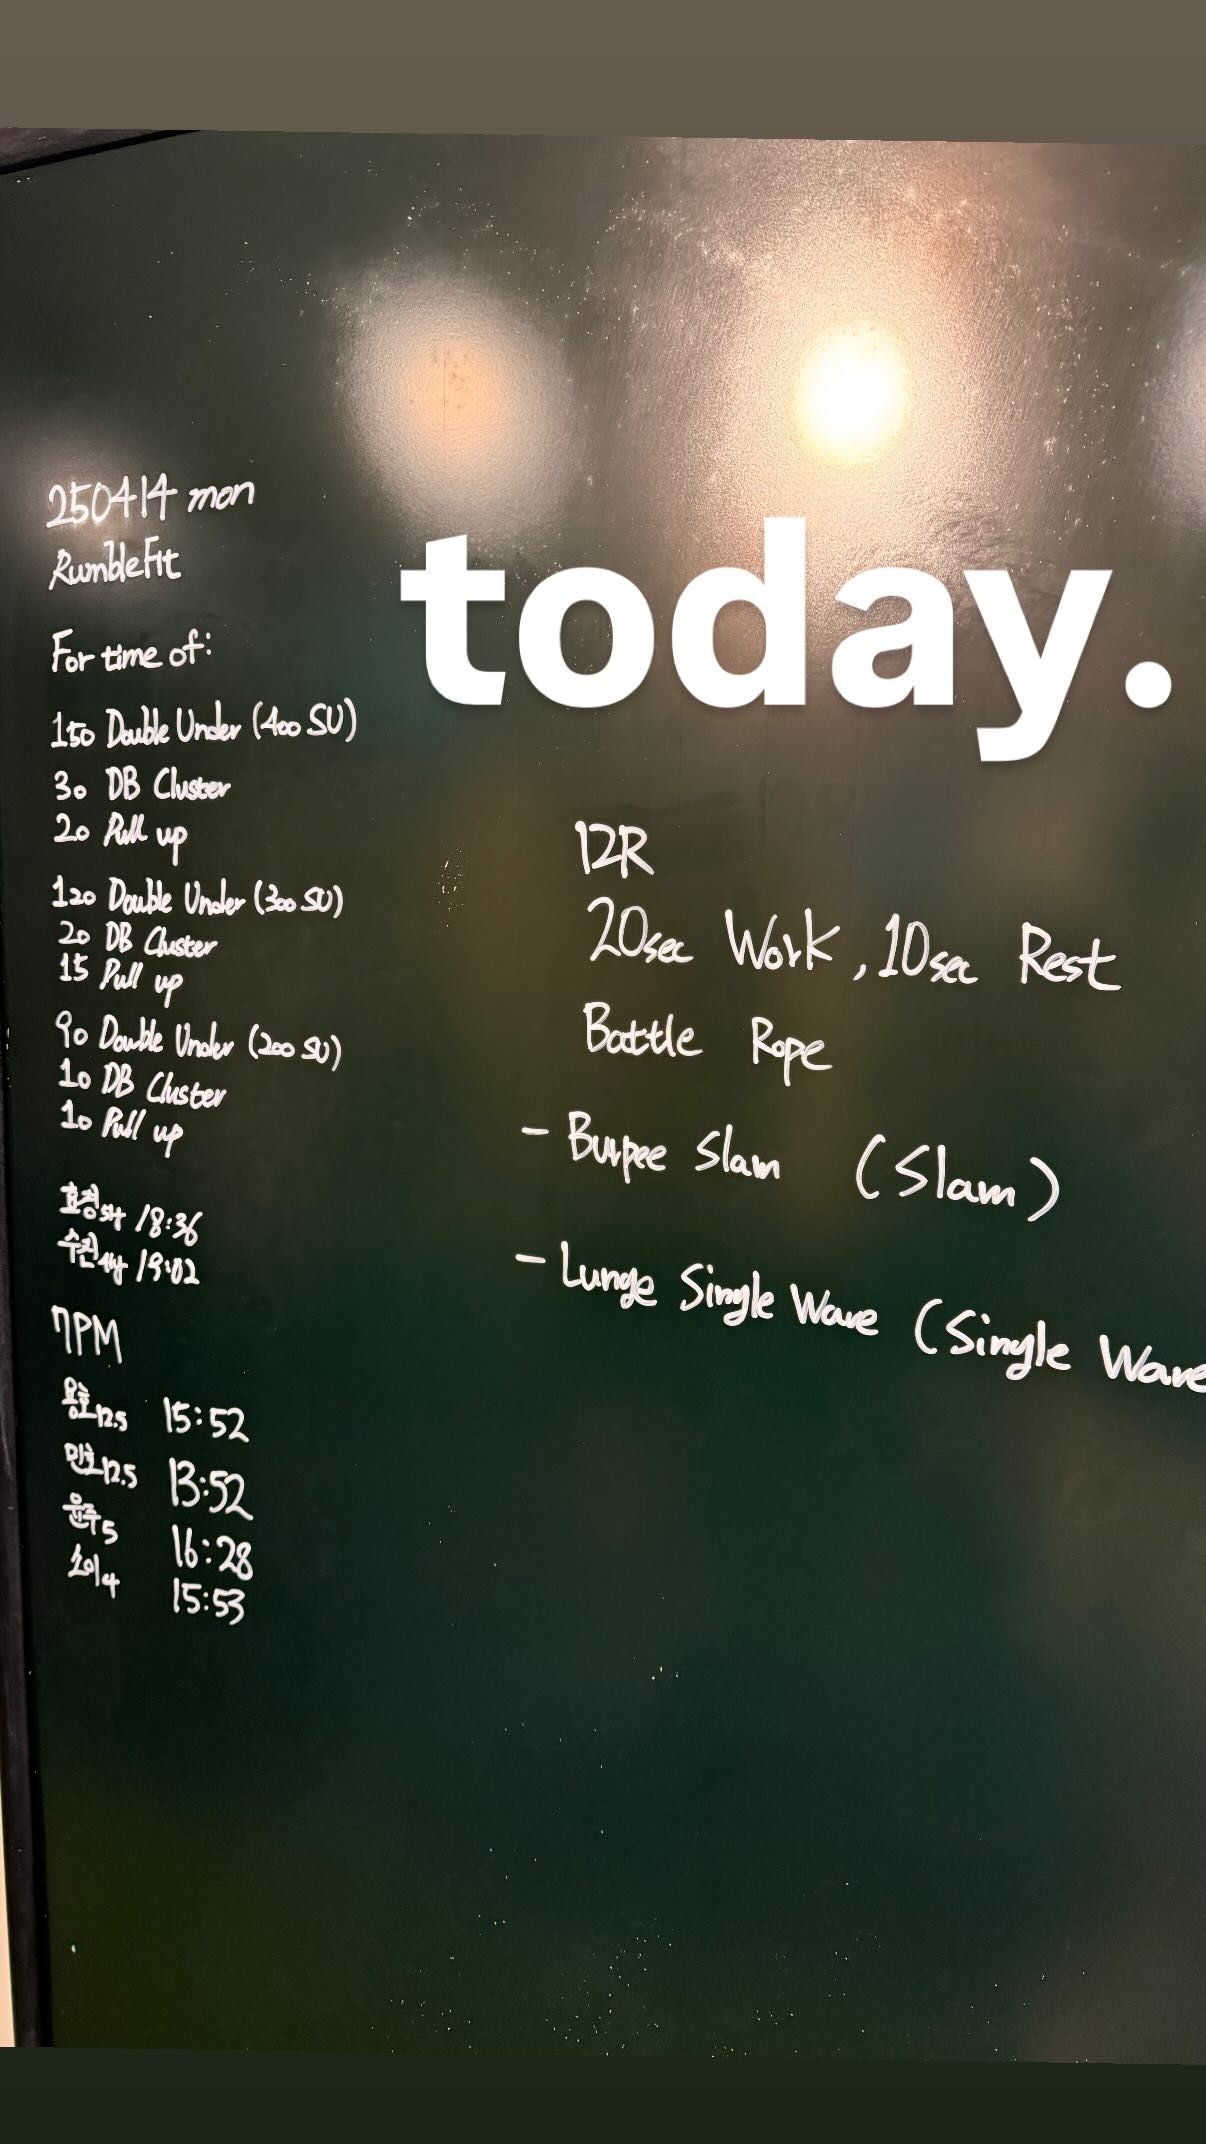 250414 mon
RumbleFit
today.
For time of:
150 Double Under (400 SU)
30 DB Cluster
20 Pull up
120 Double Under (300 SU)
20 DB Cluster
15 Pull up
90 Double Under (200 SU)
10 DB Cluster
10 Pull up
효정 18:36
수진 19:02
7PM
용호 12.5 15:52
민호 12.5 13:52
윤주 5 16:28
소이 4 15:53
12R
20sec Work, 10sec Rest
Battle Rope
- Burpee Slam (Slam)
- Lunge Single Wave (Single Wave